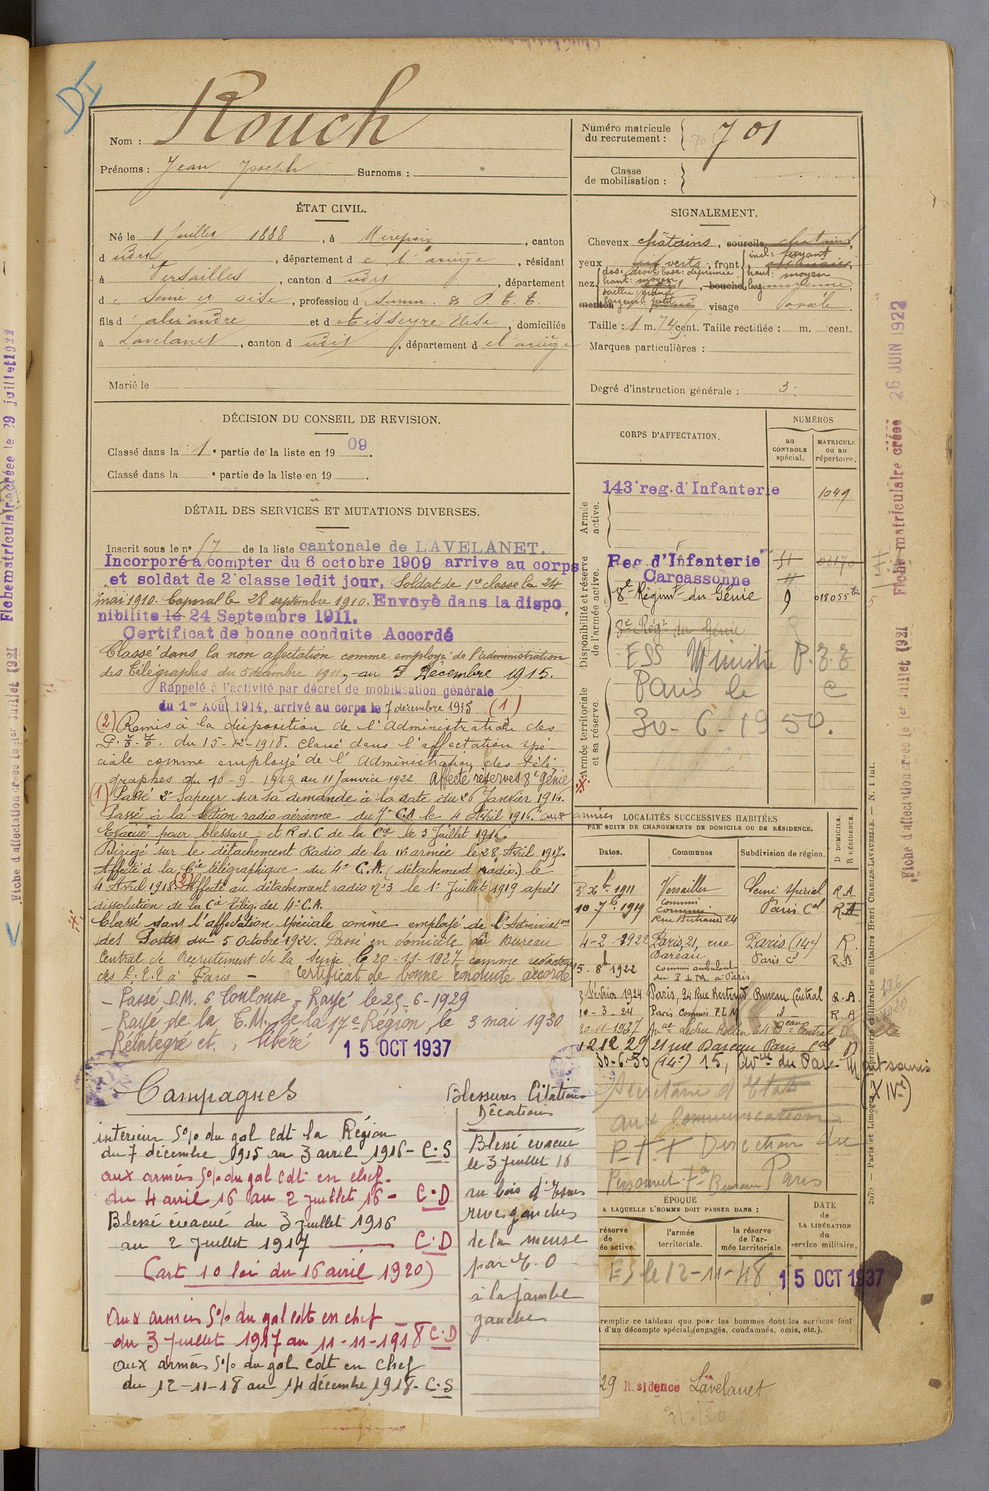 DI
Nom : Rouch
Prénoms : Jean Joseph Surnoms :
Numéro matricule du recrutement : 701
Classe de mobilisation :
ÉTAT CIVIL.
Né le 1 Juillet 1888, à Mirepoix, canton
dudit, département de l'ariège, résidant
à Versailles, canton dudit, département
de Seine et oise, profession de Surn. & P.T.T.
fils d'alexandre et de Tisseyre Elise, domiciliés
à Lavelanet, canton dudit, département de l'ariège
Marié le
SIGNALEMENT.
Cheveux châtains, sourcils châtains,
yeux verts, front incl: fuyant
haut: moyen
nez dos: droit base: déprimée
haut: moyen bouche larg. moyenne,
saillie: grand
largeur: petit
menton visage ovale
Taille : 1 m. 74 cent. Taille rectifiée : m. cent.
Marques particulières :
Degré d'instruction générale : 3.
DÉCISION DU CONSEIL DE REVISION.
Classé dans la 1e partie de la liste en 1909.
Classé dans la e partie de la liste en 19 .
DÉTAIL DES SERVICES ET MUTATIONS DIVERSES.
Inscrit sous le n° 17 de la liste cantonale de LAVELANET.
Incorporé à compter du 6 octobre 1909 arrive au corps
et soldat de 2e classe ledit jour. Soldat de 1re classe le 24
mai 1910. Caporal le 28 septembre 1910. Envoyé dans la dispo
nibilite le 24 Septembre 1911.
Certificat de bonne conduite Accordé
Classé dans la non affectation comme employé de l'administration
des Télégraphes du 5 décembre 1911, au 5 Décembre 1915.
Rappelé à l'activité par décret de mobilisation générale
du 1er Août 1914, arrivé au corps le 7 décembre 1915 (1)
(2) Remis à la disposition de l'Administration des
P.T.T. du 15-12-1918. Classé dans l'affectation spé-
ciale comme employé de l'Administration des Télé-
graphes du 10-9-1919 au 11 Janvier 1922. Affecté réserves 8e Génie
(1) Passé 2e Sapeur sur sa demande à la date du 26 Janvier 1916.
Passé à la Section radio-aérienne du 7e CA le 4 Avril 1916. aux armées
Evacué pour blessure et R.d.C de la Cie le 3 Juillet 1916
Dirigé sur le détachement Radio de la IVe armée le 28 Avril 1917
Affecté à la Cie Télégraphique du 4e C.A. (détachement radio) le
4 Avril 1918 (2) Affecté au détachement radio n° 3 le 1er Juillet 1919 après
dissolution de la Cie Télég. du 4e C.A.
Classé dans l'affectation spéciale comme employé de l'Administion
des Postes du 5 Octobre 1922. Passé en domicile au Bureau
Central de Recrutement de la Seine le 20-11-1927 comme rédacteur
des P.T.T. à Paris - Certificat de bonne conduite accordé
- Passé D.M. 6 Toulouse - Rayé le 25-6-1929
- Rayé de la C.M. de la 17e Région, le 3 mai 1930
Réintegré et libéré 15 OCT 1937
Campagnes
intérieur 5% du gal cdt la Région
du 7 décembre 1915 au 3 avril 1916 - C.S
aux armées 5% du gal cdt en chef.
du 4 avril 16 au 2 juillet 16 - C.D
Blessé évacué du 3 juillet 1916
au 2 Juillet 1917 C.D
(art 10 loi du 16 avril 1920)
aux armées 5% du gal cdt en chef
du 3 juillet 1917 au 11-11-1918 C.D
aux armées 5% du gal cdt en chef
du 12-11-18 au 14 décembre 1918 - C.S
Blessures Citations
Décorations
Blessé évacué
le 3 juillet 16
au bois d'Esnes
rive gauche
de la meuse
par E.O
à la jambe
gauche
CORPS D'AFFECTATION.
NUMÉROS
au CONTROLE spécial.
MATRICULE ou au répertoire.
Armée active.
143e reg. d'Infanterie 1049
Disponibilité et réserve de l'armée active.
Reg. d'Infanterie
Carcassonne
8e Régimt du Génie 9 018055
8e Régt du Génie
ESS Ministre P.T.T.
Paris le
30-6-1950.
Armée territoriale et sa réserve.
LOCALITÉS SUCCESSIVES HABITÉES
PAR SUITE DE CHANGEMENTS DE DOMICILE OU DE RÉSIDENCE.
Dates. Communes Subdivision de région. D DOMICILE. R RÉSIDENCE.
3 Xbre 1911 Versailles Seine spécial R.A
10 7bre 1919 Rue Bertrand 24 Paris Cal R.A
4-2-1922 Paris, 21, rue Bareau Paris (14e) R.
5. 8bre 1922 Commis ambulant du P.L.M. à Paris Paris Cal R.A
3 Février 1924 Paris, 24 Rue Bertrand Bureau Central R.A.
10-3-24 Paris Commis P.L.M d° R.A
20-11-1927 Av. Ledru Rollin 64 Beau Central D
12 12 29 21 rue Bareau Paris Cal D
30-6-50 (14e) 15, Avue du Parc Montsouris
Secrétaire d'Etat
aux Communications
PTT Direction du
Personnel 7e Bureau Paris
ÉPOQUE
A LAQUELLE L'HOMME DOIT PASSER DANS :
réserve de l'armée active.
l'armée territoriale.
la réserve de l'armée territoriale.
DATE de LA LIBÉRATION du service militaire.
ES le 12-11-48 15 OCT 1937
remplir ce tableau que pour les hommes dont les services font
d'un décompte spécial (engagés, condamnés, omis, etc.).
29 Résidence Lavelanet
Fiche matriculaire créée le 29 juillet 1922
Fiche d'affectation créée le 1er Juillet 1921
Fiche matriculaire créée 26 JUIN 1922
Fiche d'affectation créée le 1er Juillet 1921
2079 — Paris et Limoges — Imprimerie et librairie militaires Henri CHARLES-LAVAUZELLE. — N. 1 int.